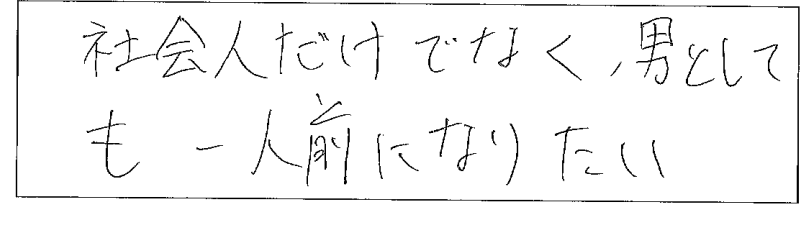 社会人だけでなく、男として
も一人前になりたい